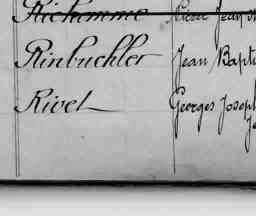 Richomme Pierre Jean
Rinbuchler Jean Bapt
Rivet Georges Joseph